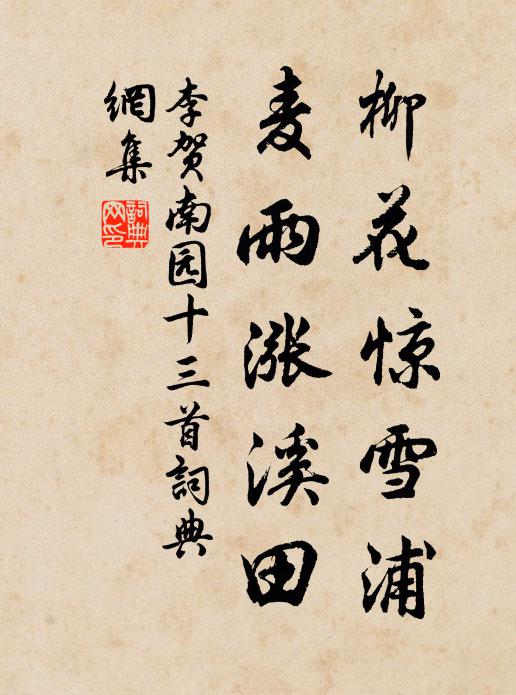 柳花惊雪浦
麦雨漲溪田
李贺南园十三首詞典
網集
詞典
网印